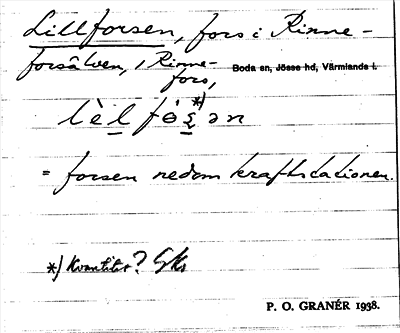 Lillforsen, fors i Rinne-
forsälven, i Rinne-
fors,
Boda sn, Jösse hd, Värmlands l.
lèl fɵ́s̱ *) ən
= forsen nedom kraftstationen.
*) Kvantitet? Gks
P. O. GRANÉR 1938.